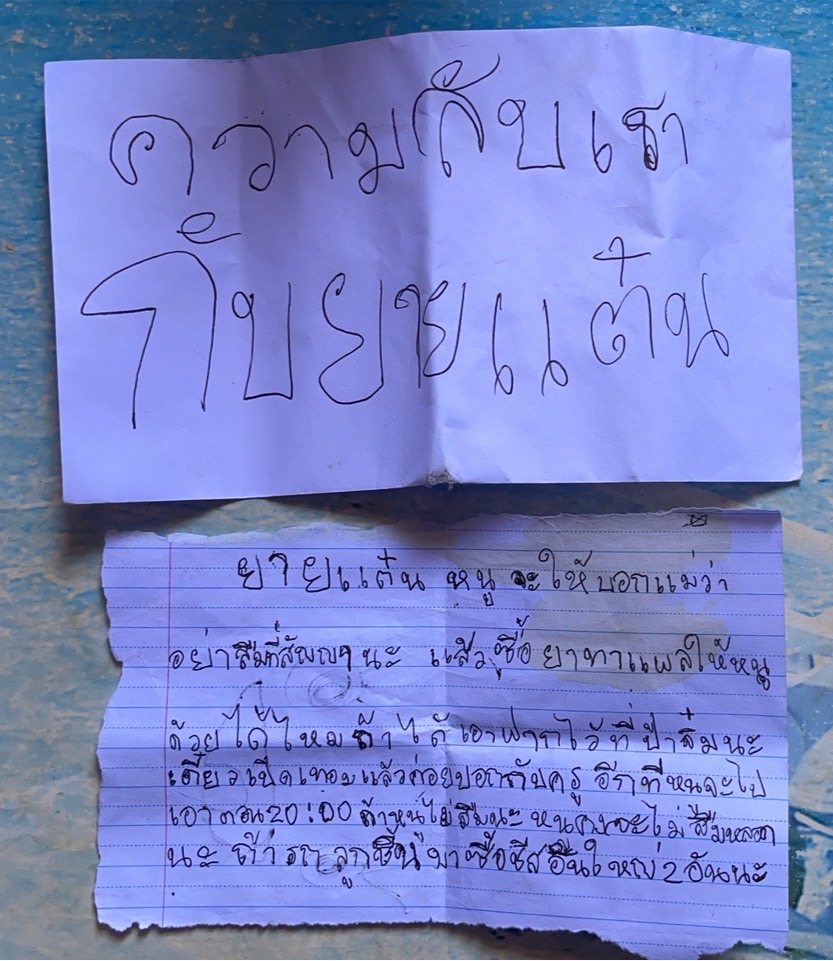 ความลับเรา
กับยายแต๋น
ยายแต๋น หนู จะให้ บอกแม่ว่า
อย่าลืมที่สัญญานะ แล้วซื้อ ยาทาแผลให้หนู
ด้วยได้ไหม ถ้าได้ เอาฝากไว้ที่ ป้าส้มนะ
เดี๋ยวเปิดเทอม แล้วค่อยบอกกับครู อีกที หนูจะไป
เอาตอน 20:00 ถ้าหนูไม่ลืมนะ หนูคงจะไม่ ลืมหลอก
นะ ถ้า รถ ลูกชิ้น มา ซื้อชีสอันใหญ่ 2 อันนะ